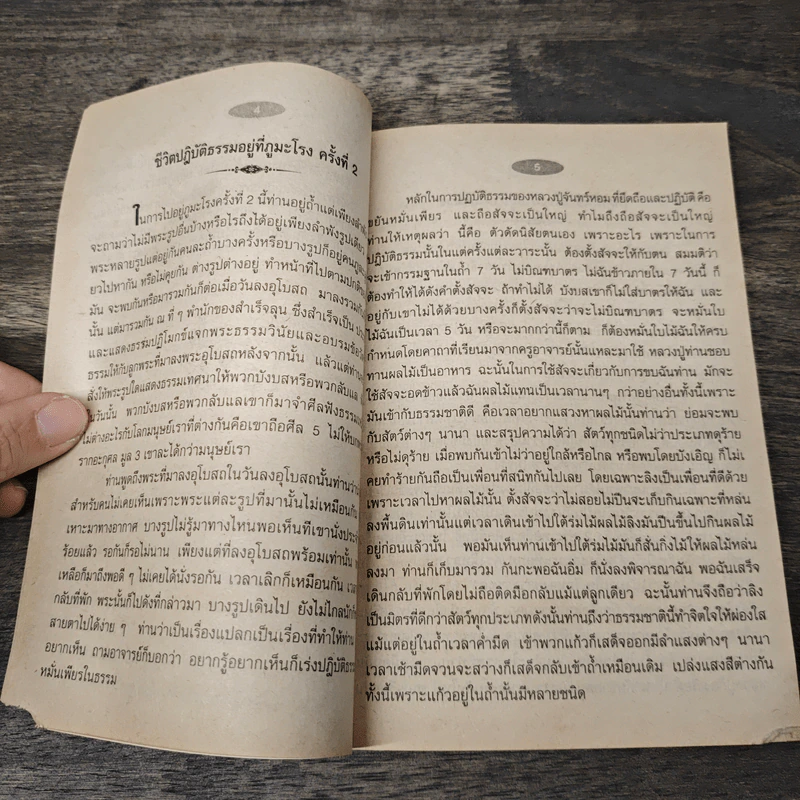 4
ชีวิตปฏิบัติธรรมอยู่ที่ภูมะโรง ครั้งที่ 2
ในการไปอยู่ภูมะโรงครั้งที่ 2 นี้ท่านอยู่ถ้ำแต่เพียงลำพัง
จะถามว่าไม่มีพระรูปอื่นบ้างหรือไรถึงได้อยู่เพียงลำพังรูปเดียว
พระหลายรูปแต่อยู่กันคนละถ้ำบางครั้งหรือบางรูปก็อยู่คนละ
ยวไปหากัน หรือไม่คุยกัน ต่างรูปต่างอยู่ ทำหน้าที่ไปตามปกติ
มัน จะพบกันหรือมารวมกันก็ต่อเมื่อวันลงอุโบสถ มาลงรวมกัน
นั้น แต่มารวมกัน ณ ที่ ๆ พำนักของสำเร็จลุน ซึ่งสำเร็จเป็น
และแสดงธรรมปฏิโมกข์แจกพระธรรมวินัยและอบรมข้อ
ธรรมให้กับลูกพระที่มาลงพระอุโบสถหลังจากนั้น แล้วแต่ท่าน
สั่งให้พระรูปใดแสดงธรรมเทศนาให้พวกบังบสหรือพวกลับแล
ในวันนั้น พวกบังบสหรือพวกลับแลเขาก็มาจำศีลฟังธรรม
ไม่ต่างอะไรกับโลกมนุษย์เราที่ต่างกันคือเขาถือศีล 5 ไม่ให้
รากอะกุศล มูล 3 เขาละได้กว่ามนุษย์เรา
ท่านพูดถึงพระที่มาลงอุโบสถในวันลงอุโบสถนั้นท่านว่า
สำหรับคนไม่เคยเห็นเพราะพระแต่ละรูปที่มานั้นไม่เหมือนกัน
เหาะมาทางอากาศ บางรูปไม่รู้มาทางไหนพอเห็นที่เขานั่ง
ร้อยแล้ว รอกันก็รอไม่นาน เพียงแต่ที่ลงอุโบสถพร้อมเท่านั้น
เหลือก็มาถึงพอดี ๆ ไม่เคยได้นั่งรอกัน เวลาเลิกก็เหมือนกัน
กลับที่พัก พระนั้นก็ไปดังที่กล่าวมา บางรูปเดินไป ยังไม่ไกลนัก
สายตาไปได้ง่าย ๆ ท่านว่าเป็นเรื่องแปลกเป็นเรื่องที่ทำให้ท่าน
อยากเห็น ถามอาจารย์ก็บอกว่า อยากรู้อยากเห็นก็เร่งปฏิบัติ
หมั่นเพียรในธรรม
5
หลักในการปฏบัติธรรมของหลวงปู่จันทร์หอม ที่ยึดถือและปฏิบัติ คือ
ขยันหมั่นเพียร และถือสัจจะเป็นใหญ่ ทำไมถึงถือสัจจะเป็นใหญ่
ท่านให้เหตุผลว่า นี้คือ ตัวดัดนิสัยตนเอง เพราะอะไร เพราะในการ
ปฏิบัติธรรมนั้นในแต่ครั้งแต่ละวาระนั้น ต้องตั้งสัจจะให้กับตน สมมติว่า
จะเข้ากรรมฐานในถ้ำ 7 วัน ไม่บิณฑบาตร ไม่ฉันข้าวภายใน 7 วันนี้ ก็
ต้องทำให้ได้ดังคำตั้งสัจจะ ถ้าทำไม่ได้ บังบสเขาก็ไม่ใส่บาตรให้ฉัน และ
อยู่กับเขาไม่ได้ด้วยบางครั้งก็ตั้งสัจจะว่าจะไม่บิณฑบาตร จะหมั่นใบ
ไม้ฉันเป็นเวลา 5 วัน หรือจะมากกว่านี้ก็ตาม ก็ต้องหมั่นใบไม้ฉันให้ครบ
กำหนดโดยคาถาที่เรียนมาจากครูอาจารย์นั้นแหละมาใช้ หลวงปู่ท่านชอบ
ทานผลไม้เป็นอาหาร ฉะนั้นในการใช้สัจจะเกี่ยวกับการขบฉันท่าน มักจะ
ใช้สัจจะอดข้าวแล้วฉันผลไม้แทนเป็นเวลานานๆ กว่าอย่างอื่นทั้งนี้เพราะ
มันเข้ากับธรรมชาติดี คือเวลาอยากแสวงหาผลไม้นั้นท่านว่า ย่อมจะพบ
กับสัตว์ต่างๆ นานา และสรุปความได้ว่า สัตว์ทุกชนิดไม่ว่าประเภทดุร้าย
หรือไม่ดุร้าย เมื่อพบกันเข้าไม่ว่าอยู่ใกล้หรือไกล หรือพบโดยบังเอิญ ก็ไม่เคย
คิดทำร้ายกันถือเป็นเพื่อนที่สนิทกันไปเลย โดยเฉพาะลิงเป็นเพื่อนที่ดีด้วย
เพราะเวลาไปหาผลไม้นั้น ตั้งสัจจะว่าไม่สอยไม่ปีนจะเก็บกินเฉพาะที่หล่น
ลงพื้นดินเท่านั้นแต่เวลาเดินเข้าไปใต้ร่มไม้ผลไม้ลิงมันปีนขึ้นไปกินผลไม้
อยู่ก่อนแล้วนั้น พอมันเห็นท่านเข้าไปใต้ร่มไม้มันก็สั่นกิ่งไม้ให้ผลไม้หล่น
ลงมา ท่านก็เก็บมารวม กันกะพอฉันอิ่ม ก็นั่งลงพิจารณาฉัน พอฉันเสร็จ
เดินกลับที่พักโดยไม่ถือติดมือกลับแม้แต่ลูกเดียว ฉะนั้นท่านจึงถือว่าลิง
เป็นมิตรที่ดีกว่าสัตว์ทุกประเภทดังนั้นท่านถึงว่าธรรมชาตินี้ทำจิตใจให้ผ่องใส
แม้แต่อยู่ในถ้ำเวลาค่ำมืด เข้าพวกแก้วก็เสด็จออกมีลำแสงต่างๆ นานา
เวลาเช้ามืดจวนจะสว่างก็เสด็จกลับเข้าถ้ำเหมือนเดิม เปล่งแสงสีต่างกัน
ทั้งนี้เพราะแก้วอยู่ในถ้ำนั้นมีหลายชนิด